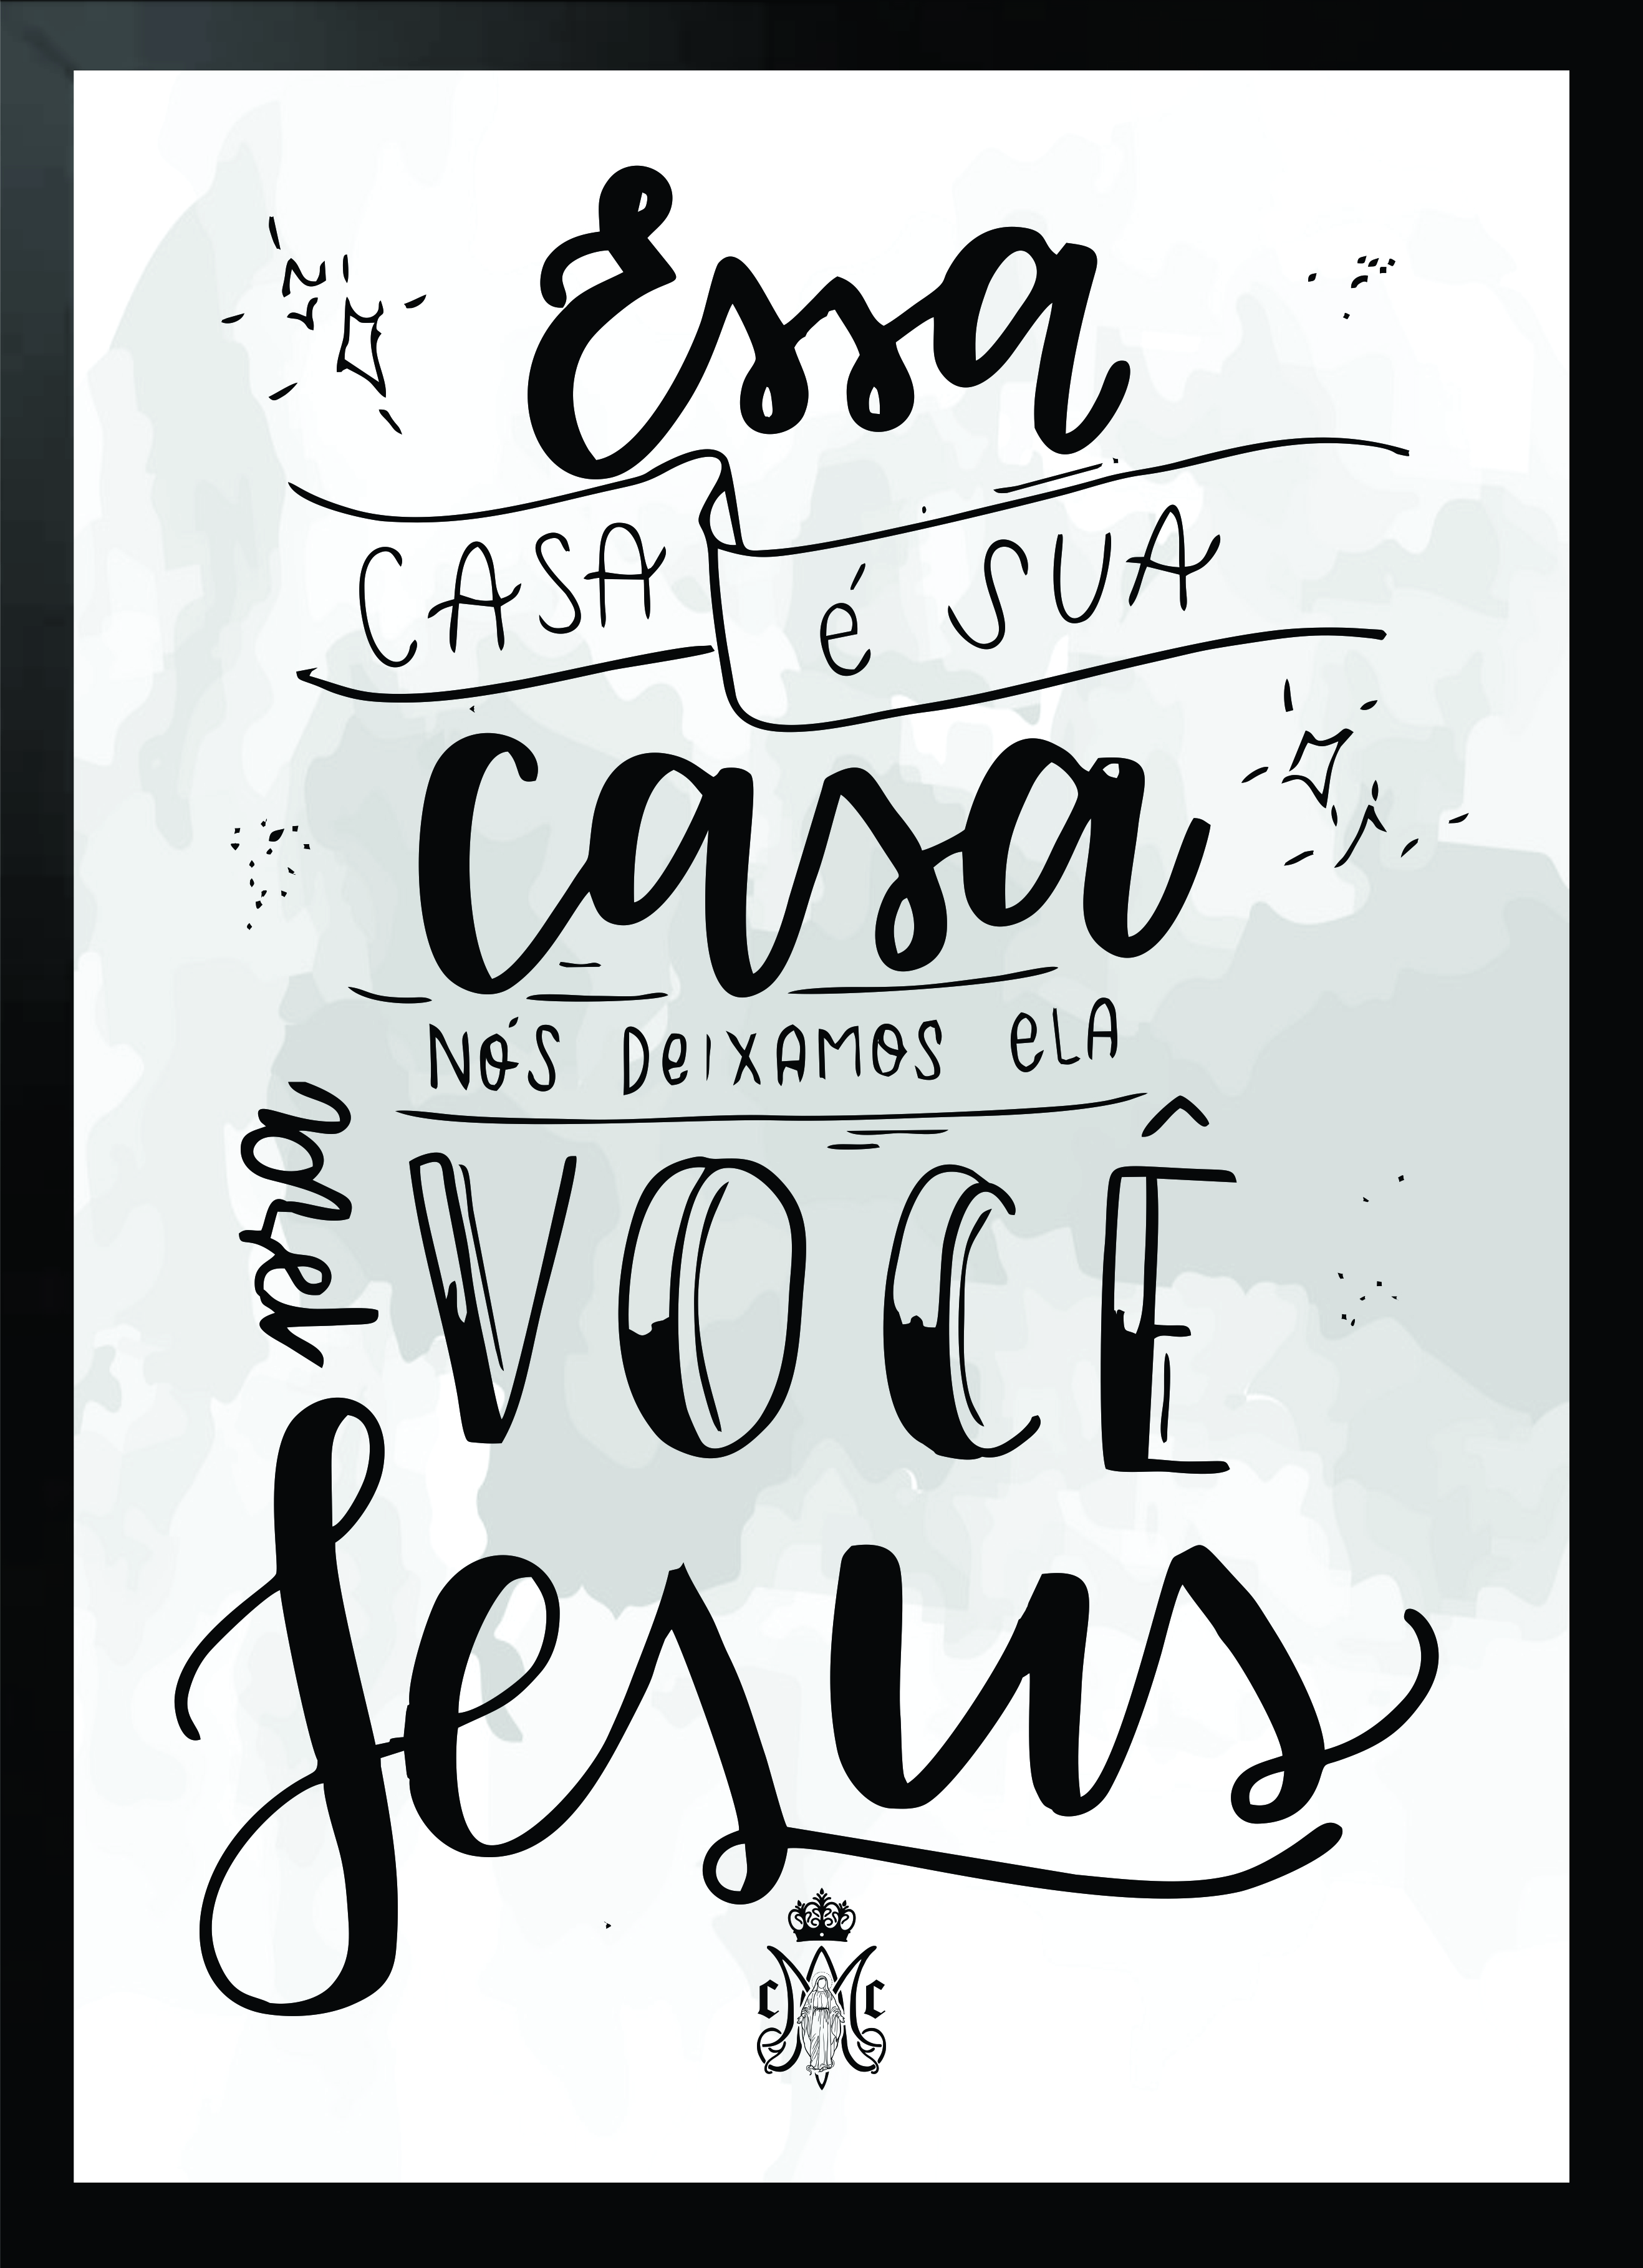 Essa
CASA é SUA
casa
NÓS DEIXAMOS ELA
PARA
VOCÊ
Jesus
C M C